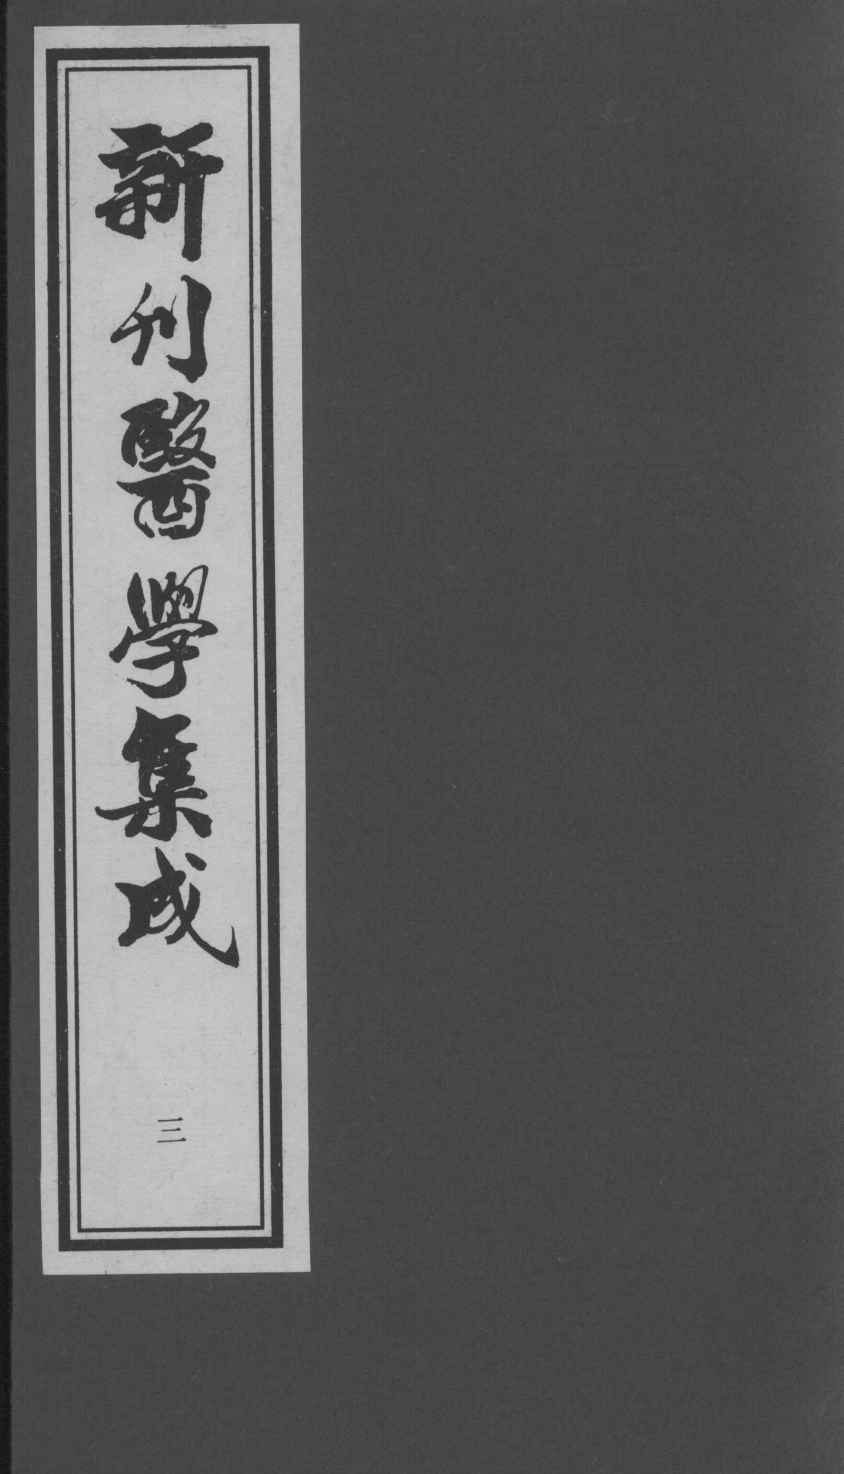 新刊醫學集成
三